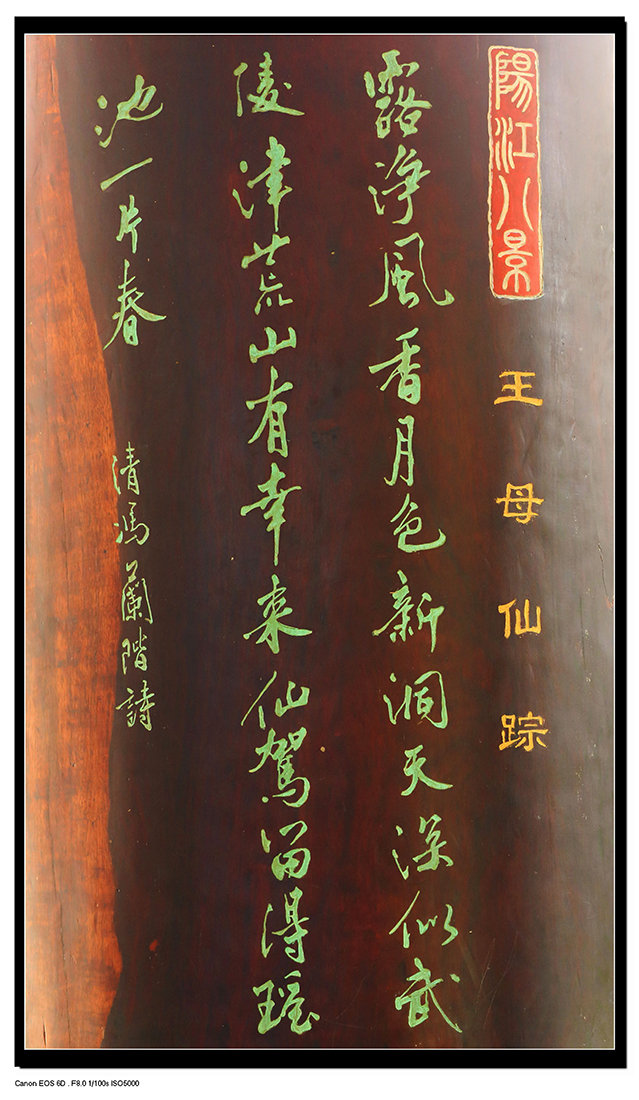 陽江八景
王母仙踪
露浄風香月色新洞天深似武
陵津荒山有幸来仙駕留得瑶
池一片春
清馮蘭階詩
Canon EOS 6D . F8.0 1/100s ISO5000